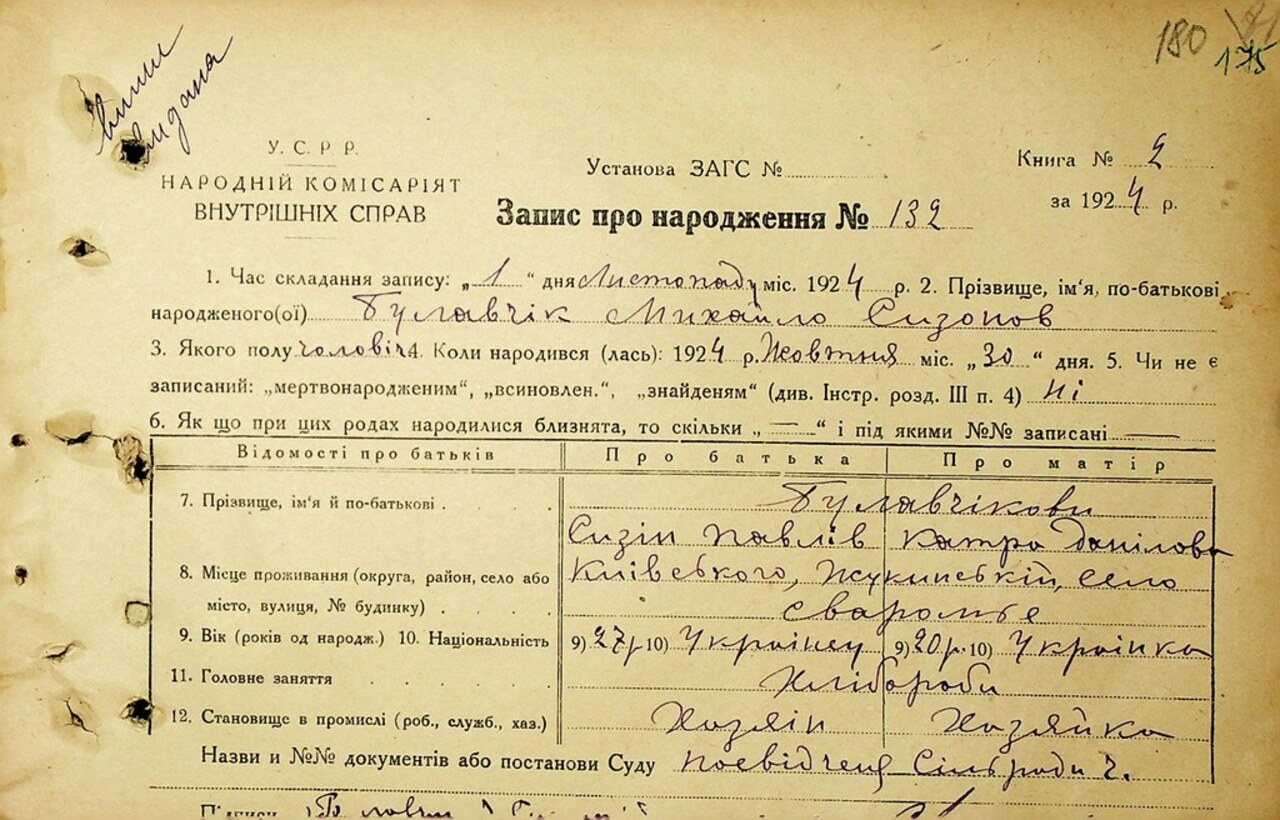 180
175
видана
У. С. Р. Р.
НАРОДНІЙ КОМІСАРІЯТ
ВНУТРІШНІХ СПРАВ
Установа ЗАГС №
Запис про народження № 132
Книга № 2
за 1924 р.
1. Час складання запису: „ 1 “ дня Листопаду міс. 1924 р. 2. Прізвище, ім'я, по-батькові
народженого(ої) Булавчік Михайло Сизонов
3. Якого полу чоловіч 4. Коли народився (лась): 1924 р. Жовтня міс. „ 30 “ дня. 5. Чи не є
записаний: „мертвонародженим“, „всиновлен.“, „знайденям“ (див. Інстр. розд. III п. 4) Ні
6. Як що при цих родах народилися близнята, то скільки „ — “ і під якими №№ записані —
Відомості про батьків Про батька Про матір
7. Прізвище, ім'я й по-батькові Булавчікови
Сизін Павлів Катря Данілова
8. Місце проживання (округа, район, село або Київського, Жукинській, село
місто, вулиця, № будинку) Сваромье
9. Вік (років од народж.) 10. Національність 9) 27 р 10) Українец 9) 20 р. 10) Українка
11. Головне заняття Хлібороби
12. Становище в промислі (роб., служб., хаз.) Хозяін Хозяйка
Назви и №№ документів або постанови Суду посвідченя Сільради ч.